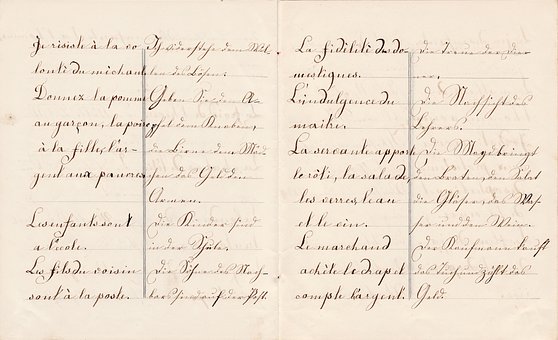 Je résiste à la vo
lonté du méchant
Donnez la pomme
au garçon, la poire
à la fille, l'ar-
gent aux pauvres
Les enfants sont
a l'école.
Les fils du voisin
sont à la poste.
Ich widerstehe dem Wil-
len des Bösen.
Geben Sie den A-
pfel dem Knaben,
die Birne dem Mäd
chen das Geld den
Armen.
Die Kinder sind
in der Schule.
Die Söhne des Nach-
bars sind auf der Post.
La fidélité des do-
mestiques.
L'indulgence du
maître.
La servante apporte
le rôti, la salade,
les verres, l'eau
et le vin.
Le marchand
achète le drap et
compte l'argent.
Die Treue der Die
ner.
Die Nachsicht des
Lehrers.
Die Magd bringt
den Braten, den Salat
die Gläser, das Was-
ser und den Wein.
Der Kaufmann kauft
das Tuch und zählt das
Geld.